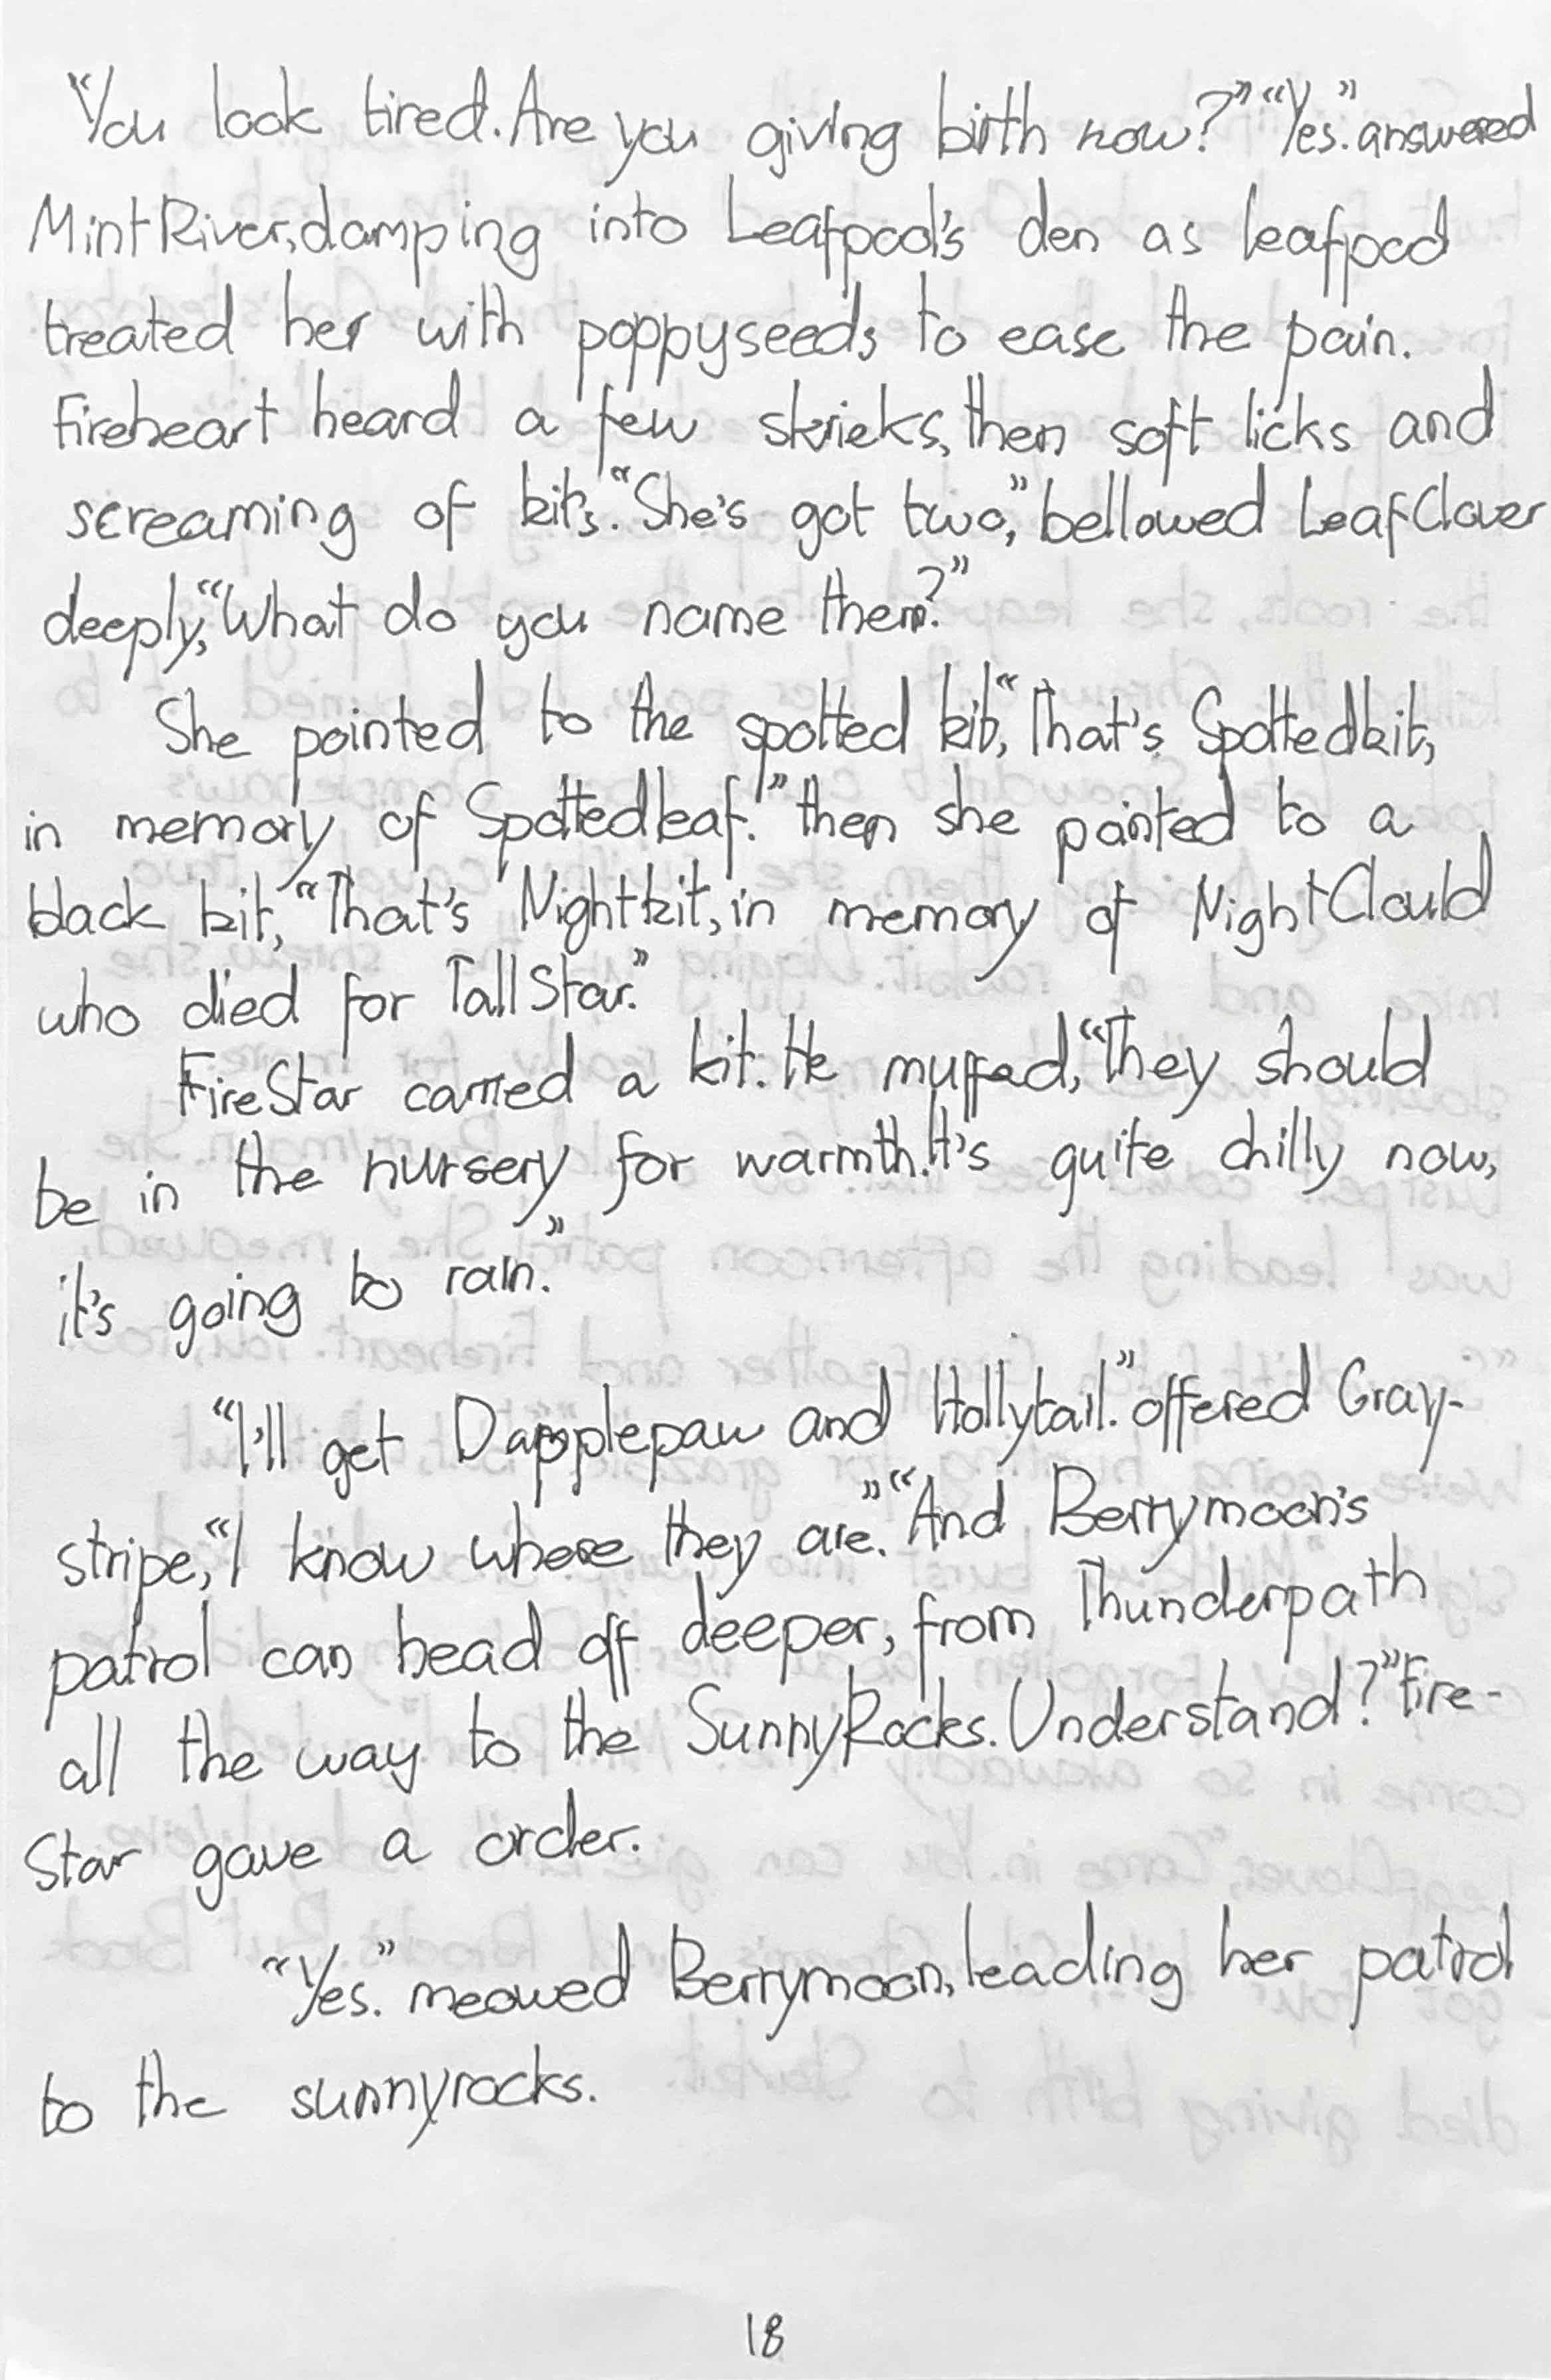 "You look tired. Are you giving birth now?" "Yes." answered
MintRiver, damping into Leafpool's den as leafpool
treated her with poppyseeds to ease the pain.
Fireheart heard a few skrieks, then soft licks and
screaming of kits. "She's got two," bellowed LeafClover
deeply, "What do you name them?"
She pointed to the spotted kit, "That's Spottedkit,
in memory of Spottedleaf." then she pointed to a
black kit, "That's Nightkit, in memory of NightClould
who died for TallStar."
FireStar carried a kit. He muffed, "They should
be in the nursery for warmth. It's quite chilly now,
it's going to rain."
"I'll get Dapplepaw and Hollytail." offered Gray-
stripe, "I know where they are." "And Berrymoon's
patrol can head off deeper, from Thunderpath
all the way to the SunnyRocks. Understand?" Fire-
Star gave a order.
"Yes." meowed Berrymoon, leading her patrol
to the sunnyrocks.
18